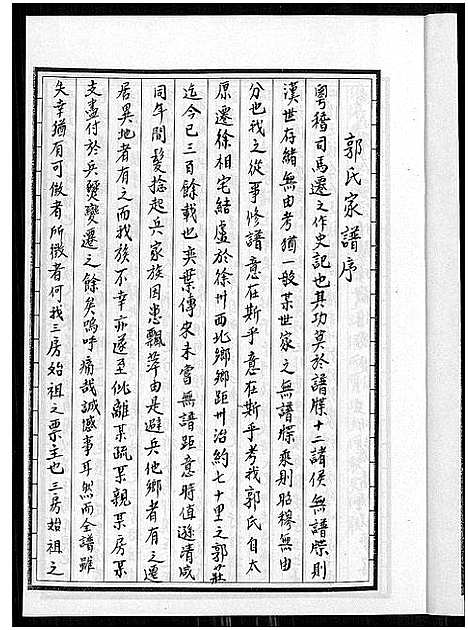 郭氏家譜序
粵稽司馬遷之作史記也其功莫於譜牒十二諸侯無譜牒則
漢世存緒無由考猶一般某世家之無譜牒乘則昭穆無由
分也我之從事修譜意在斯乎意在斯乎考我郭氏自太
原遷徐相宅結盧於徐州西北鄉鄉距州治約七十里之郭小莊
迄今已三百餘載也奕葉傳來未嘗無譜距意時值遜清咸
同年間髮捻起兵家族因患飄萍由是避兵他鄉者有之遷
居異地者有之而我族不幸亦遂至仳離某疏某親某房某
支盡付於兵燹變遷之餘矣嗚呼痛哉誠憾事耳然而全譜雖
失幸猶有可徵者所徵者何我三房始祖之票主也三房始祖之